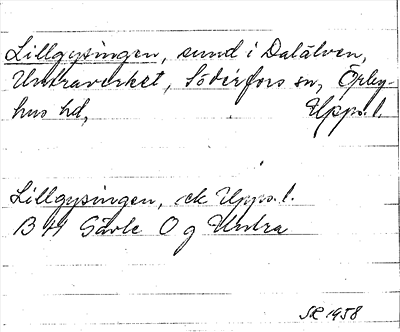 Lillgysingen, sund i Dalälven,
Untraverket, Söderfors sn, Örby-
hus hd, Upps. l.
Lillgysingen, ek Upps. l.
B A4 Gävle O g Untra
SR 1958